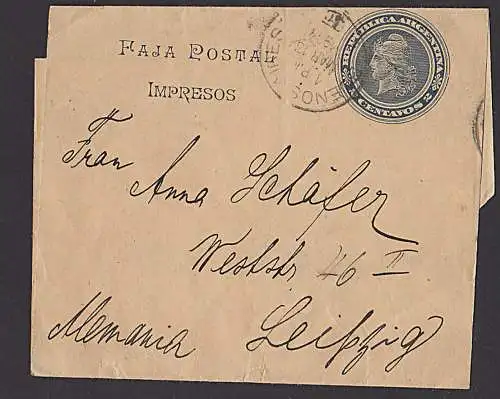 FAJA POSTAL
IMPRESOS
REPUBLICA ARGENTINA
2 CENTAVOS 2
Frau Anna Schäfer
Weststr. 46 II
Leipzig
Alemania